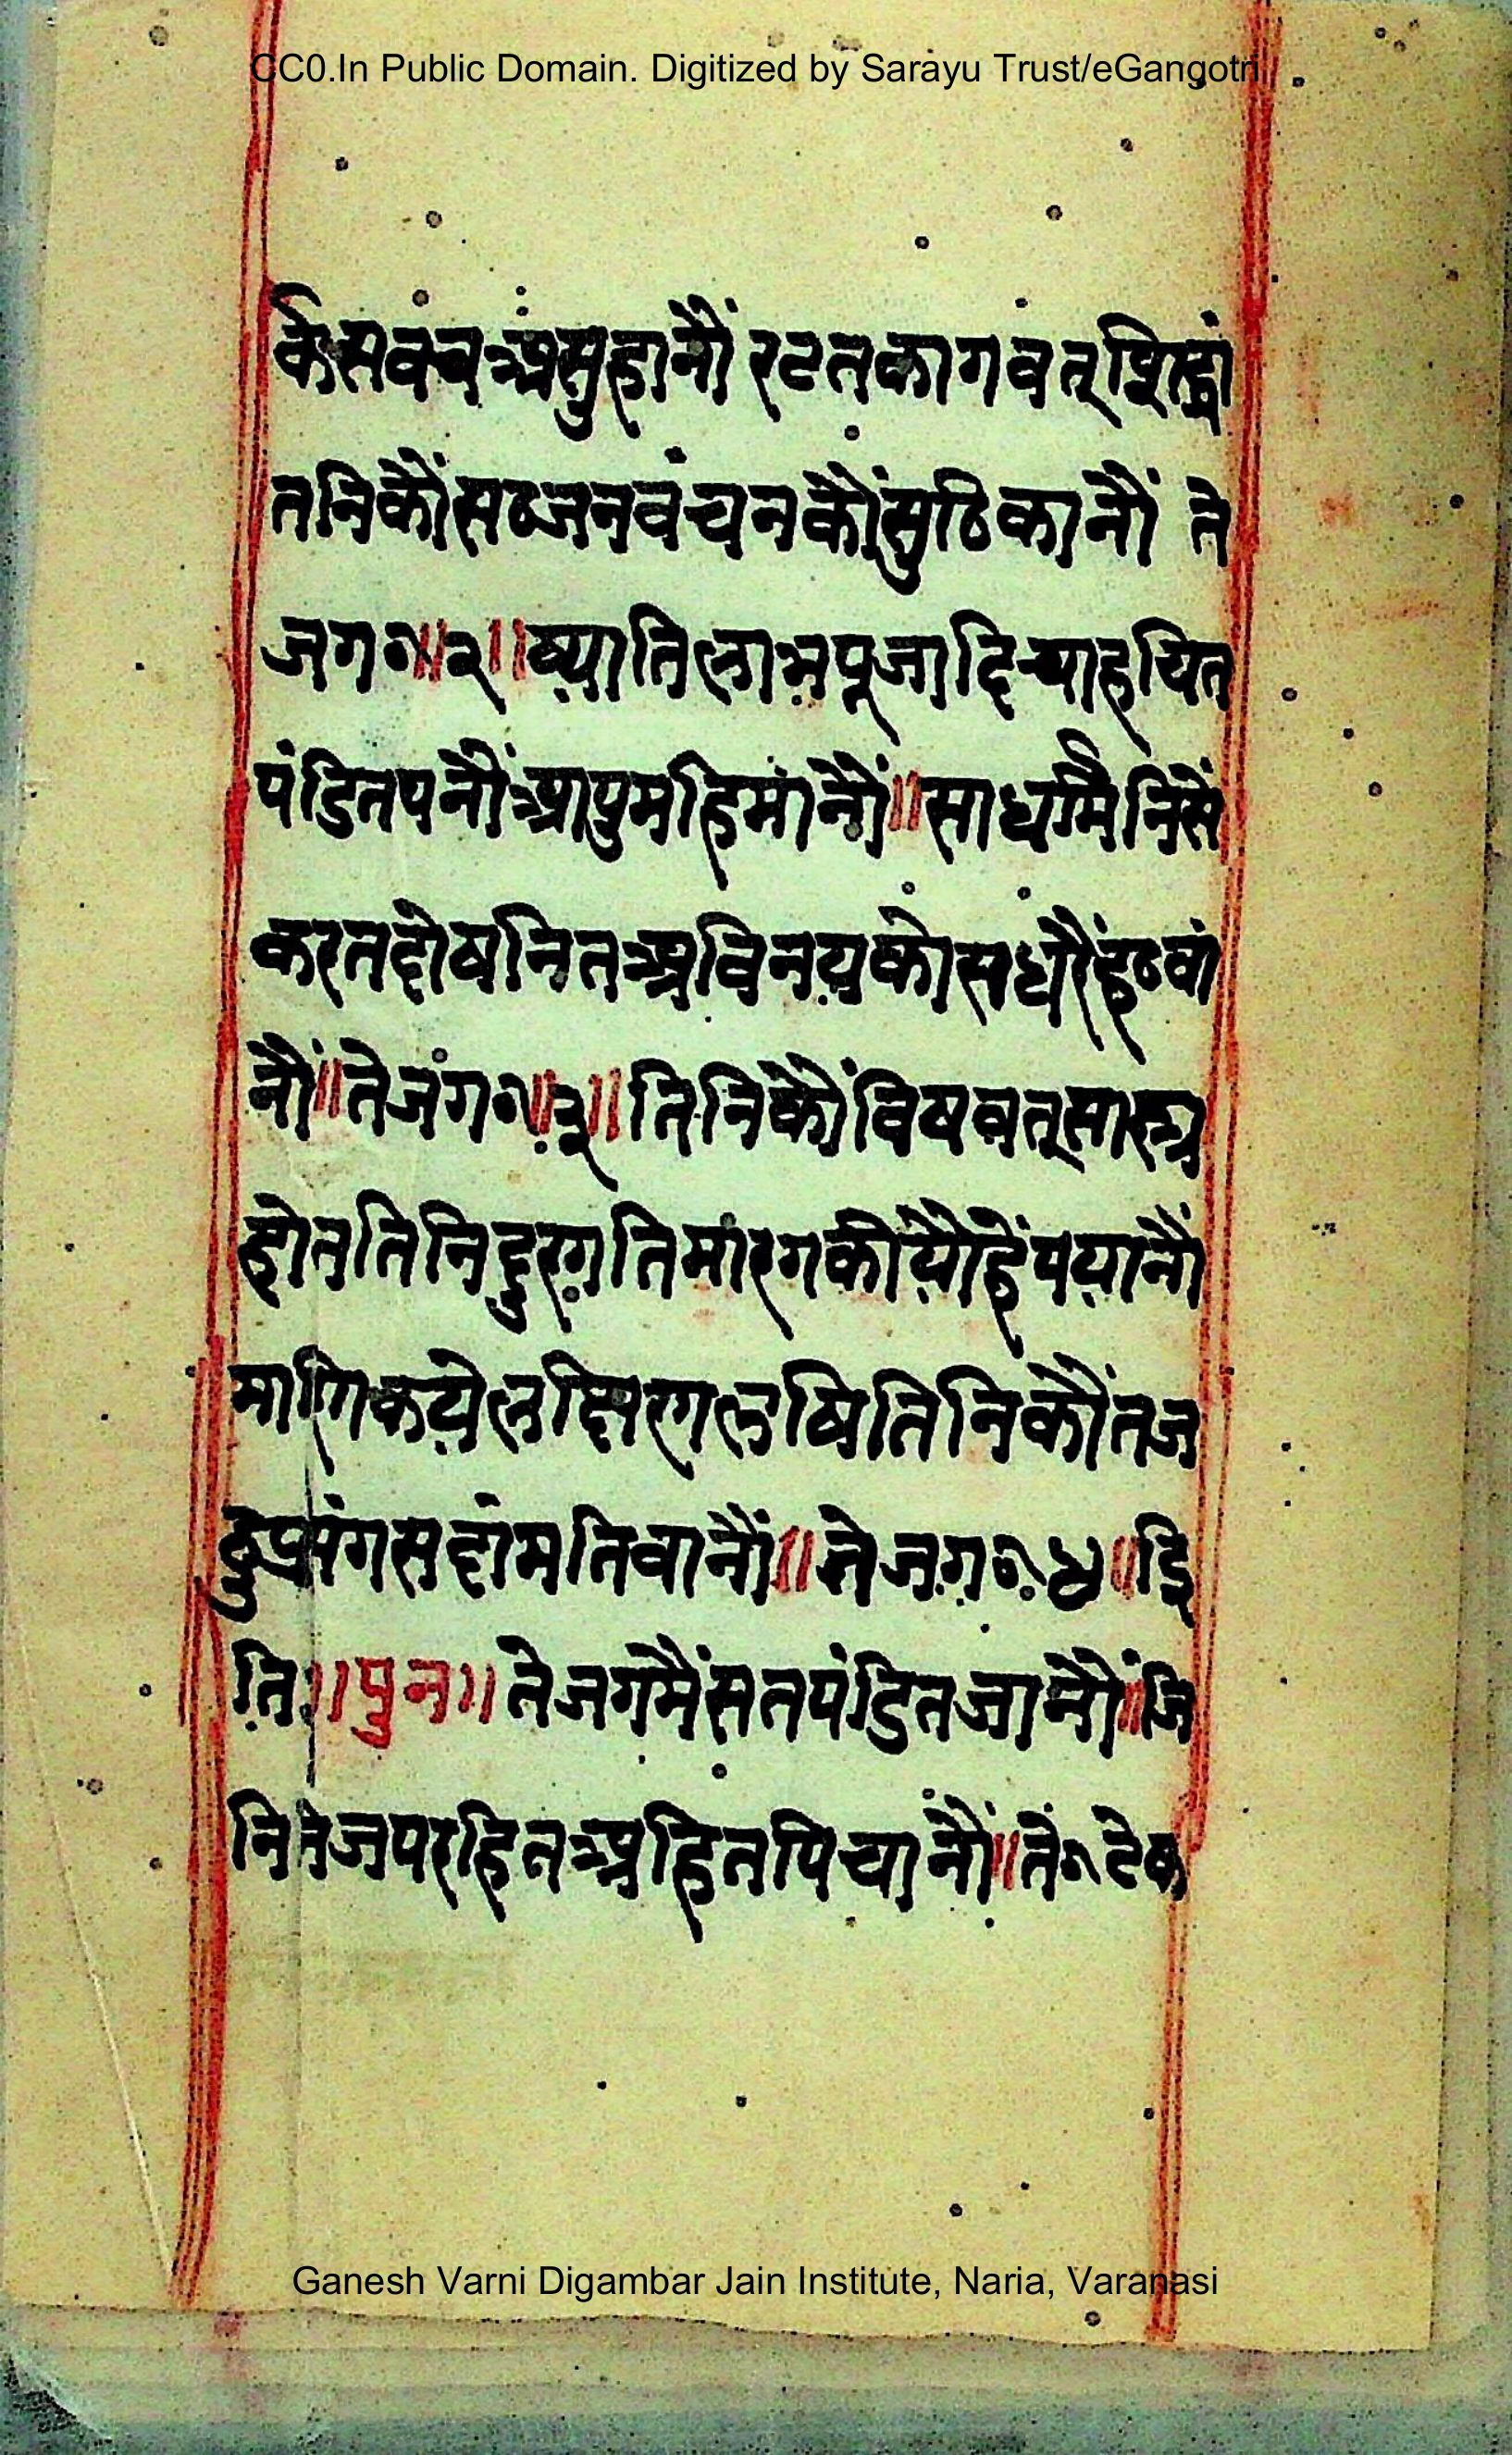 CC0.In Public Domain. Digitized by Sarayu Trust/eGangotri
के सब वच असुहानौं रटत कागवत्
तनिकौं सठ जन वंचन कौं सुठिकानौं ते
जग०॥२॥ ष्याति लाभ पूजादि चाह चित
पंडितपनौं आपु महिमांनौं॥ साधर्म्मैनिसें
करत दोष नित अविनय को स धरैं हठ वां
नौं॥ ते जग०॥३॥ तिनिकौं विषवत् सास्त्र
होत तिनि दुरगति मारग कीयौ हैं पयानौं
मांगि कये लछि लषि तिनिकौं तज
दुप्रसंग सदां मतिवानौं॥ ते जग०४॥ इ
ति॥ पुन॥ ते जगमैं सत पंडित जानौं॥ जि
नि नेज पर हित अहित पिचानौं॥ ते० टेक
Ganesh Varni Digambar Jain Institute, Naria, Varanasi